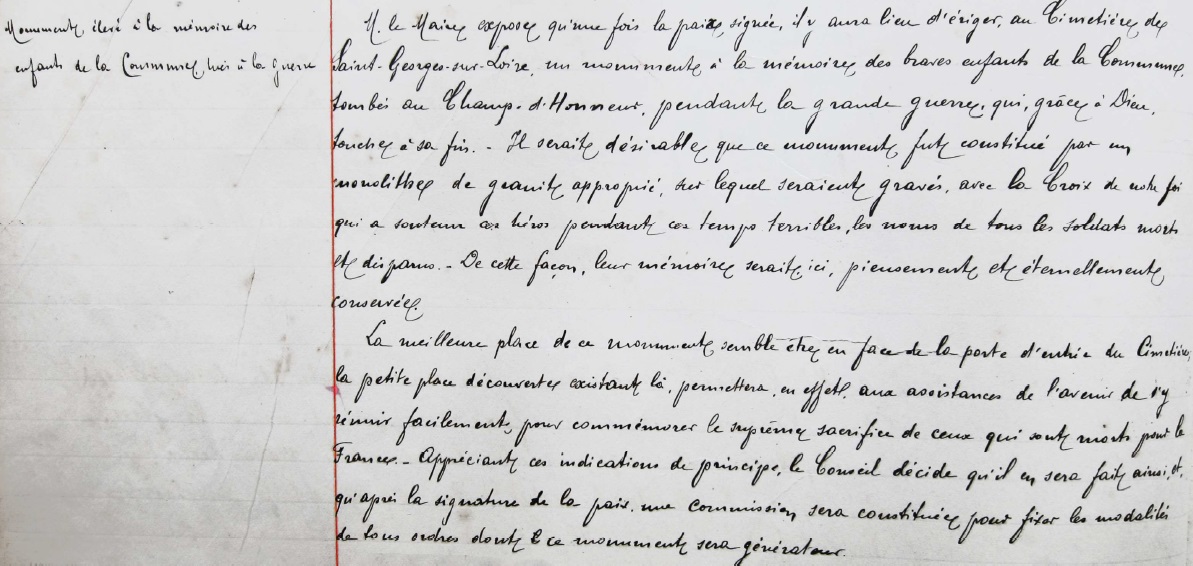 Monument élevé à la mémoire des
enfants de la Commune, tués à la guerre
M. le Maire expose qu'une fois la paix signée, il y aura lieu d'ériger, au Cimetière de
Saint-Georges-sur-Loire, un monument à la mémoire des braves enfants de la Commune,
tombés au Champ-d'Honneur, pendant la grande guerre, qui, grâce à Dieu,
touche à sa fin. - Il serait désirable que ce monument fut constitué par un
monolithe de granit approprié, sur lequel seraient gravés, avec la Croix de notre foi
qui a soutenu ces héros pendant ces temps terribles, les noms de tous les soldats morts
et disparus. - De cette façon, leur mémoire serait ici, pieusement et éternellement
conservée.
La meilleure place de ce monument semble être en face de la porte d'entrée du Cimetière,
la petite place découverte existant là, permettera, en effet, aux assistances de l'avenir de s'y
réunir facilement, pour commémorer le suprême sacrifice de ceux qui sont morts pour la
France. - Appréciant ces indications de principe, le Conseil décide qu'il en sera fait ainsi, et,
qu'après la signature de la paix, une commission sera constituée pour fixer les modalités
de tous ordres dont ce monument sera générateur.